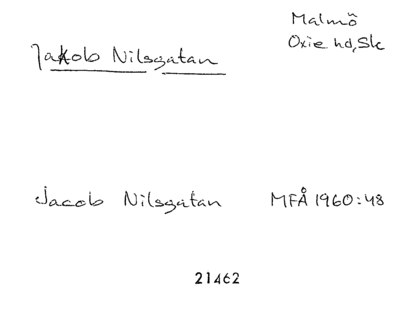 Malmö
Oxie hd, Sk
Jakob Nilsgatan
Jacob Nilsgatan MFÅ 1960:48
21462